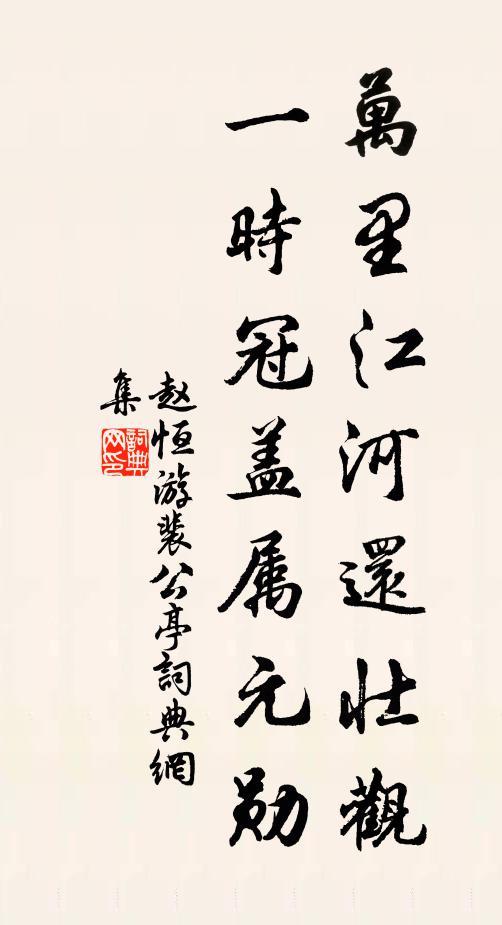 萬里江河還壯觀
一時冠盖属元勋
赵恒游裴公亭詞典網
集
詞典網印